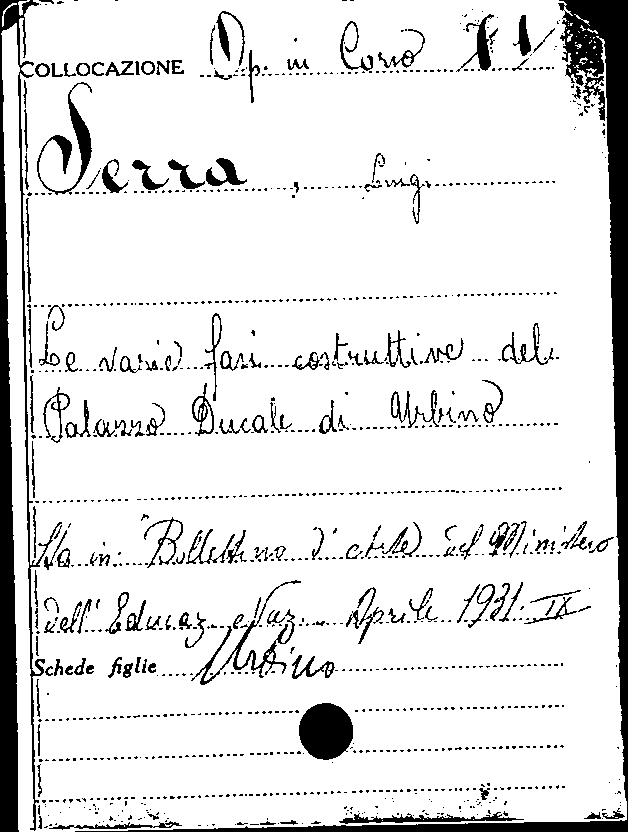 COLLOCAZIONE Op. in Corso
Serra, Luigi
Le varie fasi costruttive del
Palazzo Ducale di Urbino
Sta in: "Bollettino d'arte del Ministero
dell'Educaz. Naz. Aprile 1931. IX
Schede figlie Urbino